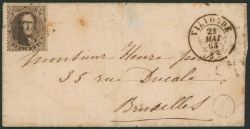 VILVORDE
21
MAI
Monsieur Henri
35 rue Ducale
Bruxelles